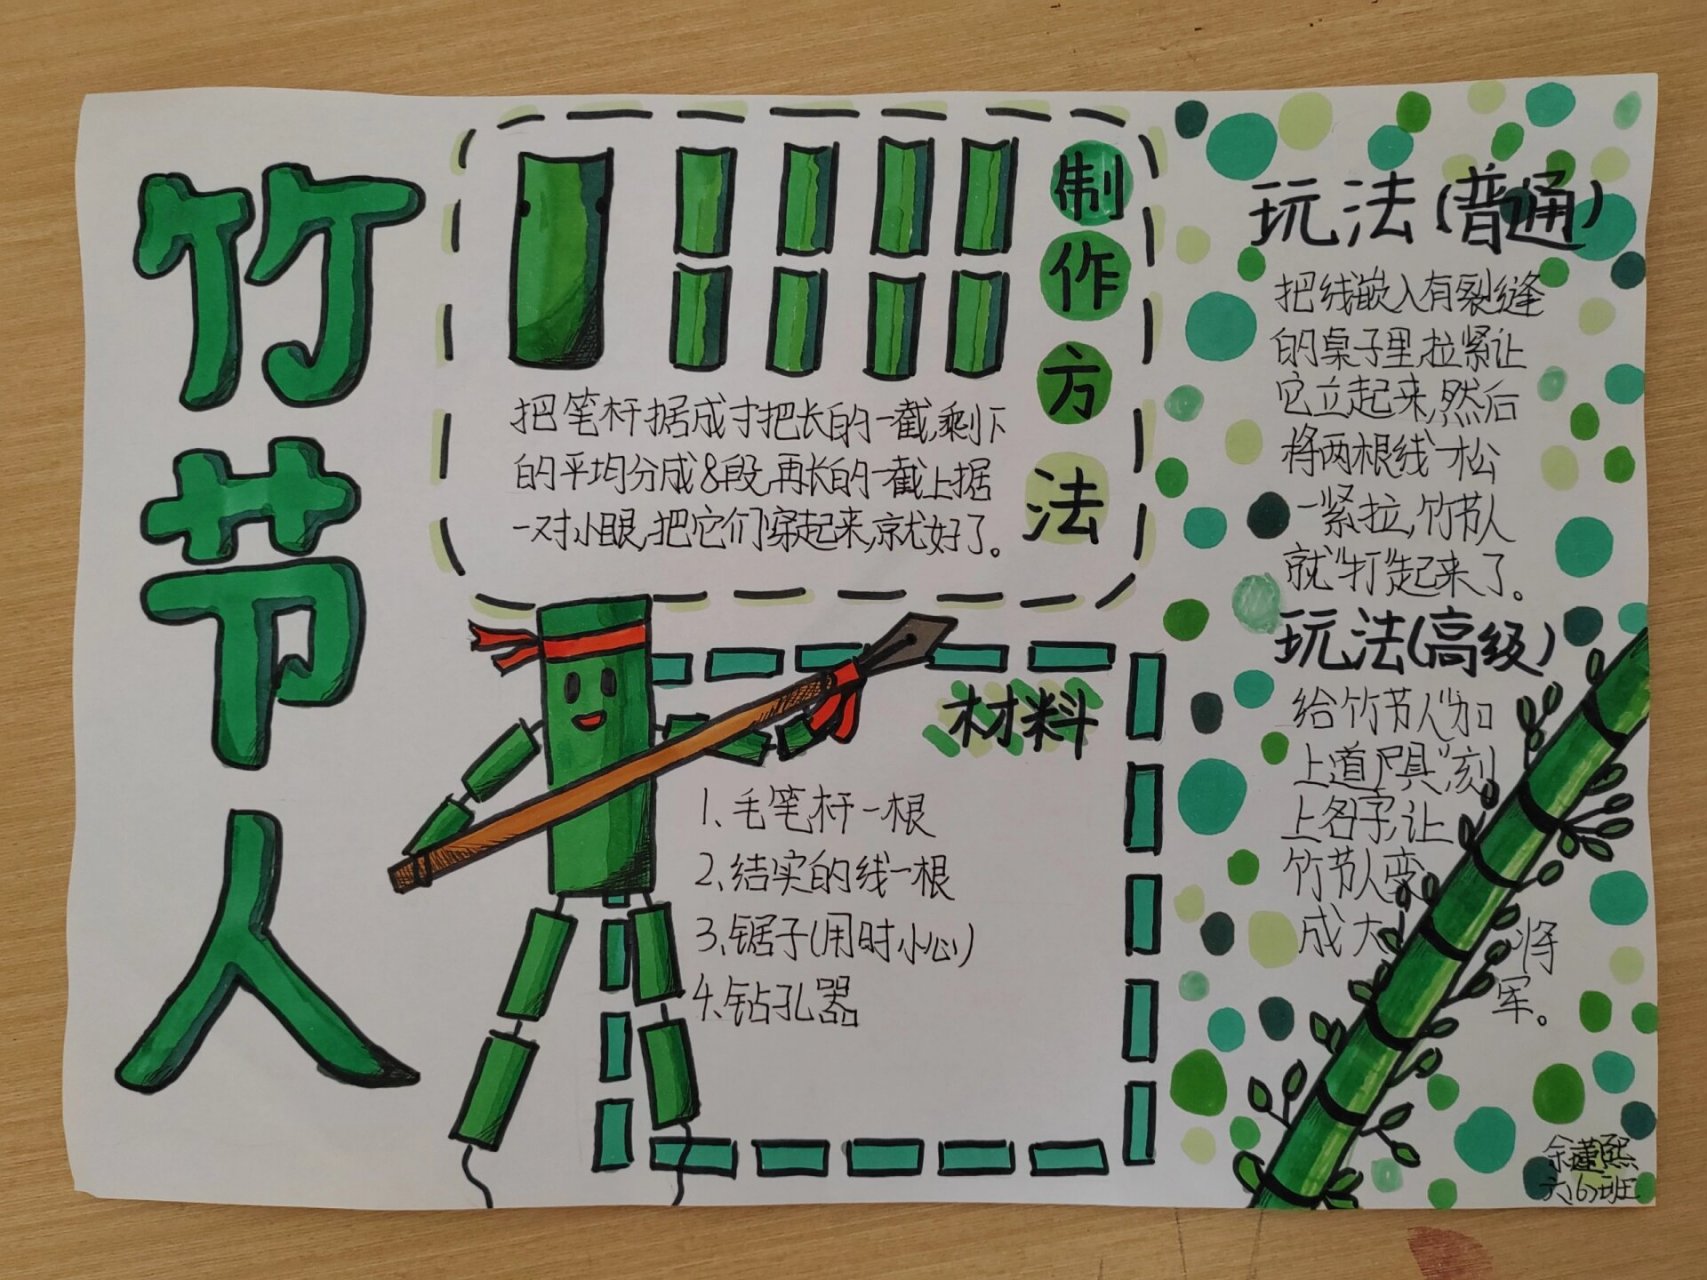 竹节人
制作方法
把笔杆据成寸把长的一截,剩下
的平均分成8段,再长的一截上据
一对小眼,把它们穿起来,就好了。
材料
1、毛笔杆一根
2、结实的线一根
3、锯子(用时小心)
4、钻孔器
玩法(普通)
把线嵌入有裂缝
的桌子里,拉紧让
它立起来,然后
将两根线一松
一紧拉,竹节人
就“打”起来了。
玩法(高级)
给竹节人“加
上道具”刻
上名字,让
竹节人变
成大将
军。
六(6)班